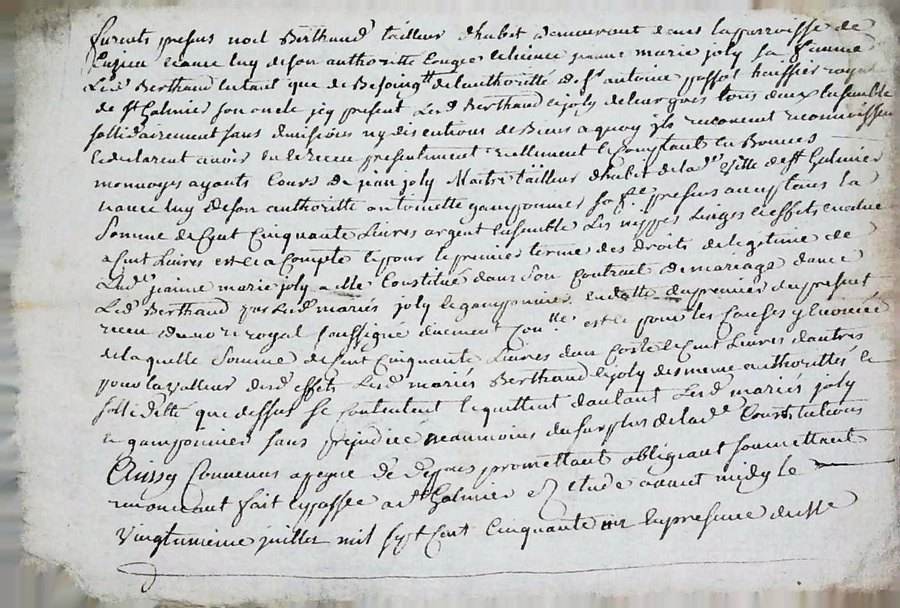 furents presens noel Bertrand tailleur dhabit demeurant dans la parroisse de
et avec luy de son authoritte Conge et licence jeanne marie joly sa femme
Led. Bertrand en tant que de Besoing de lauthoritté de sr. antoine passot huissier royal
de st Galmier son oncle jcy present Led. Bertrand et joly de leur gres tous deux ensemble
sollidairement sans division ny discutions de Biens a quoy jls renoncent reconnoissent
et declarent avoir eu et receu presentement reellement et Comptant en Bonnes
monnoyes ayants Cours de jean joly Maitre tailleur dhabit de lad. Ville de st Galmier
et avec luy de son authoritte antoinette gamponnier sa fe. presens acceptans la
Somme de Cent Cinquante Livres argent ensemble Les nippes Linges et effets evalue
a Cent Livres est a Compte et pour le premier terme des droits de legitime de
Lad. jeanne marie joly a elle Constitué dans son Contrat de mariage avec
Led. Bertrand par Lesd. mariés joly et gamponnier en datte du premier du present
receu du nore royal soussigné duement Conlle est ce pour les Causes y enoncée
de laquelle Somme de Cent Cinquante Livres dun Coste et Cent Livres dautres
pour la valleur desd. effets Lesd. mariés Bertrand et joly des meme authorittés et
solliditte que dessus se contentent et quittent dautant Lesd. mariés joly
et gamponnier sans prejudice neanmoins du surplus de lad. Constitutions
Ainsy Convenus a peyne de depens promettant obligeant soumettant
renoncant fait et passée a st Galmier Etude avant midy le
Vingtunieme juillet mil sept Cent Cinquante en presence de